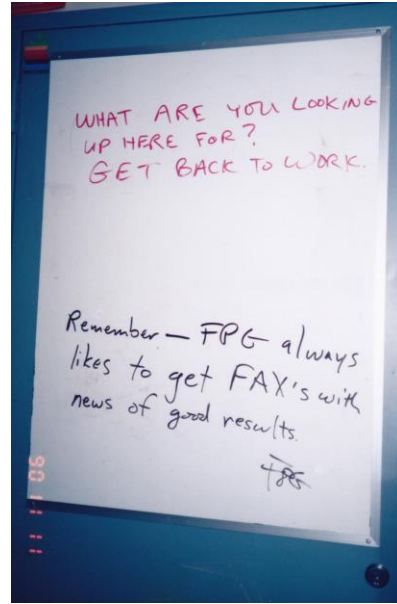 WHAT ARE YOU LOOKING
UP HERE FOR?
GET BACK TO WORK.
Remember — FPG always
likes to get FAX's with
news of good results.